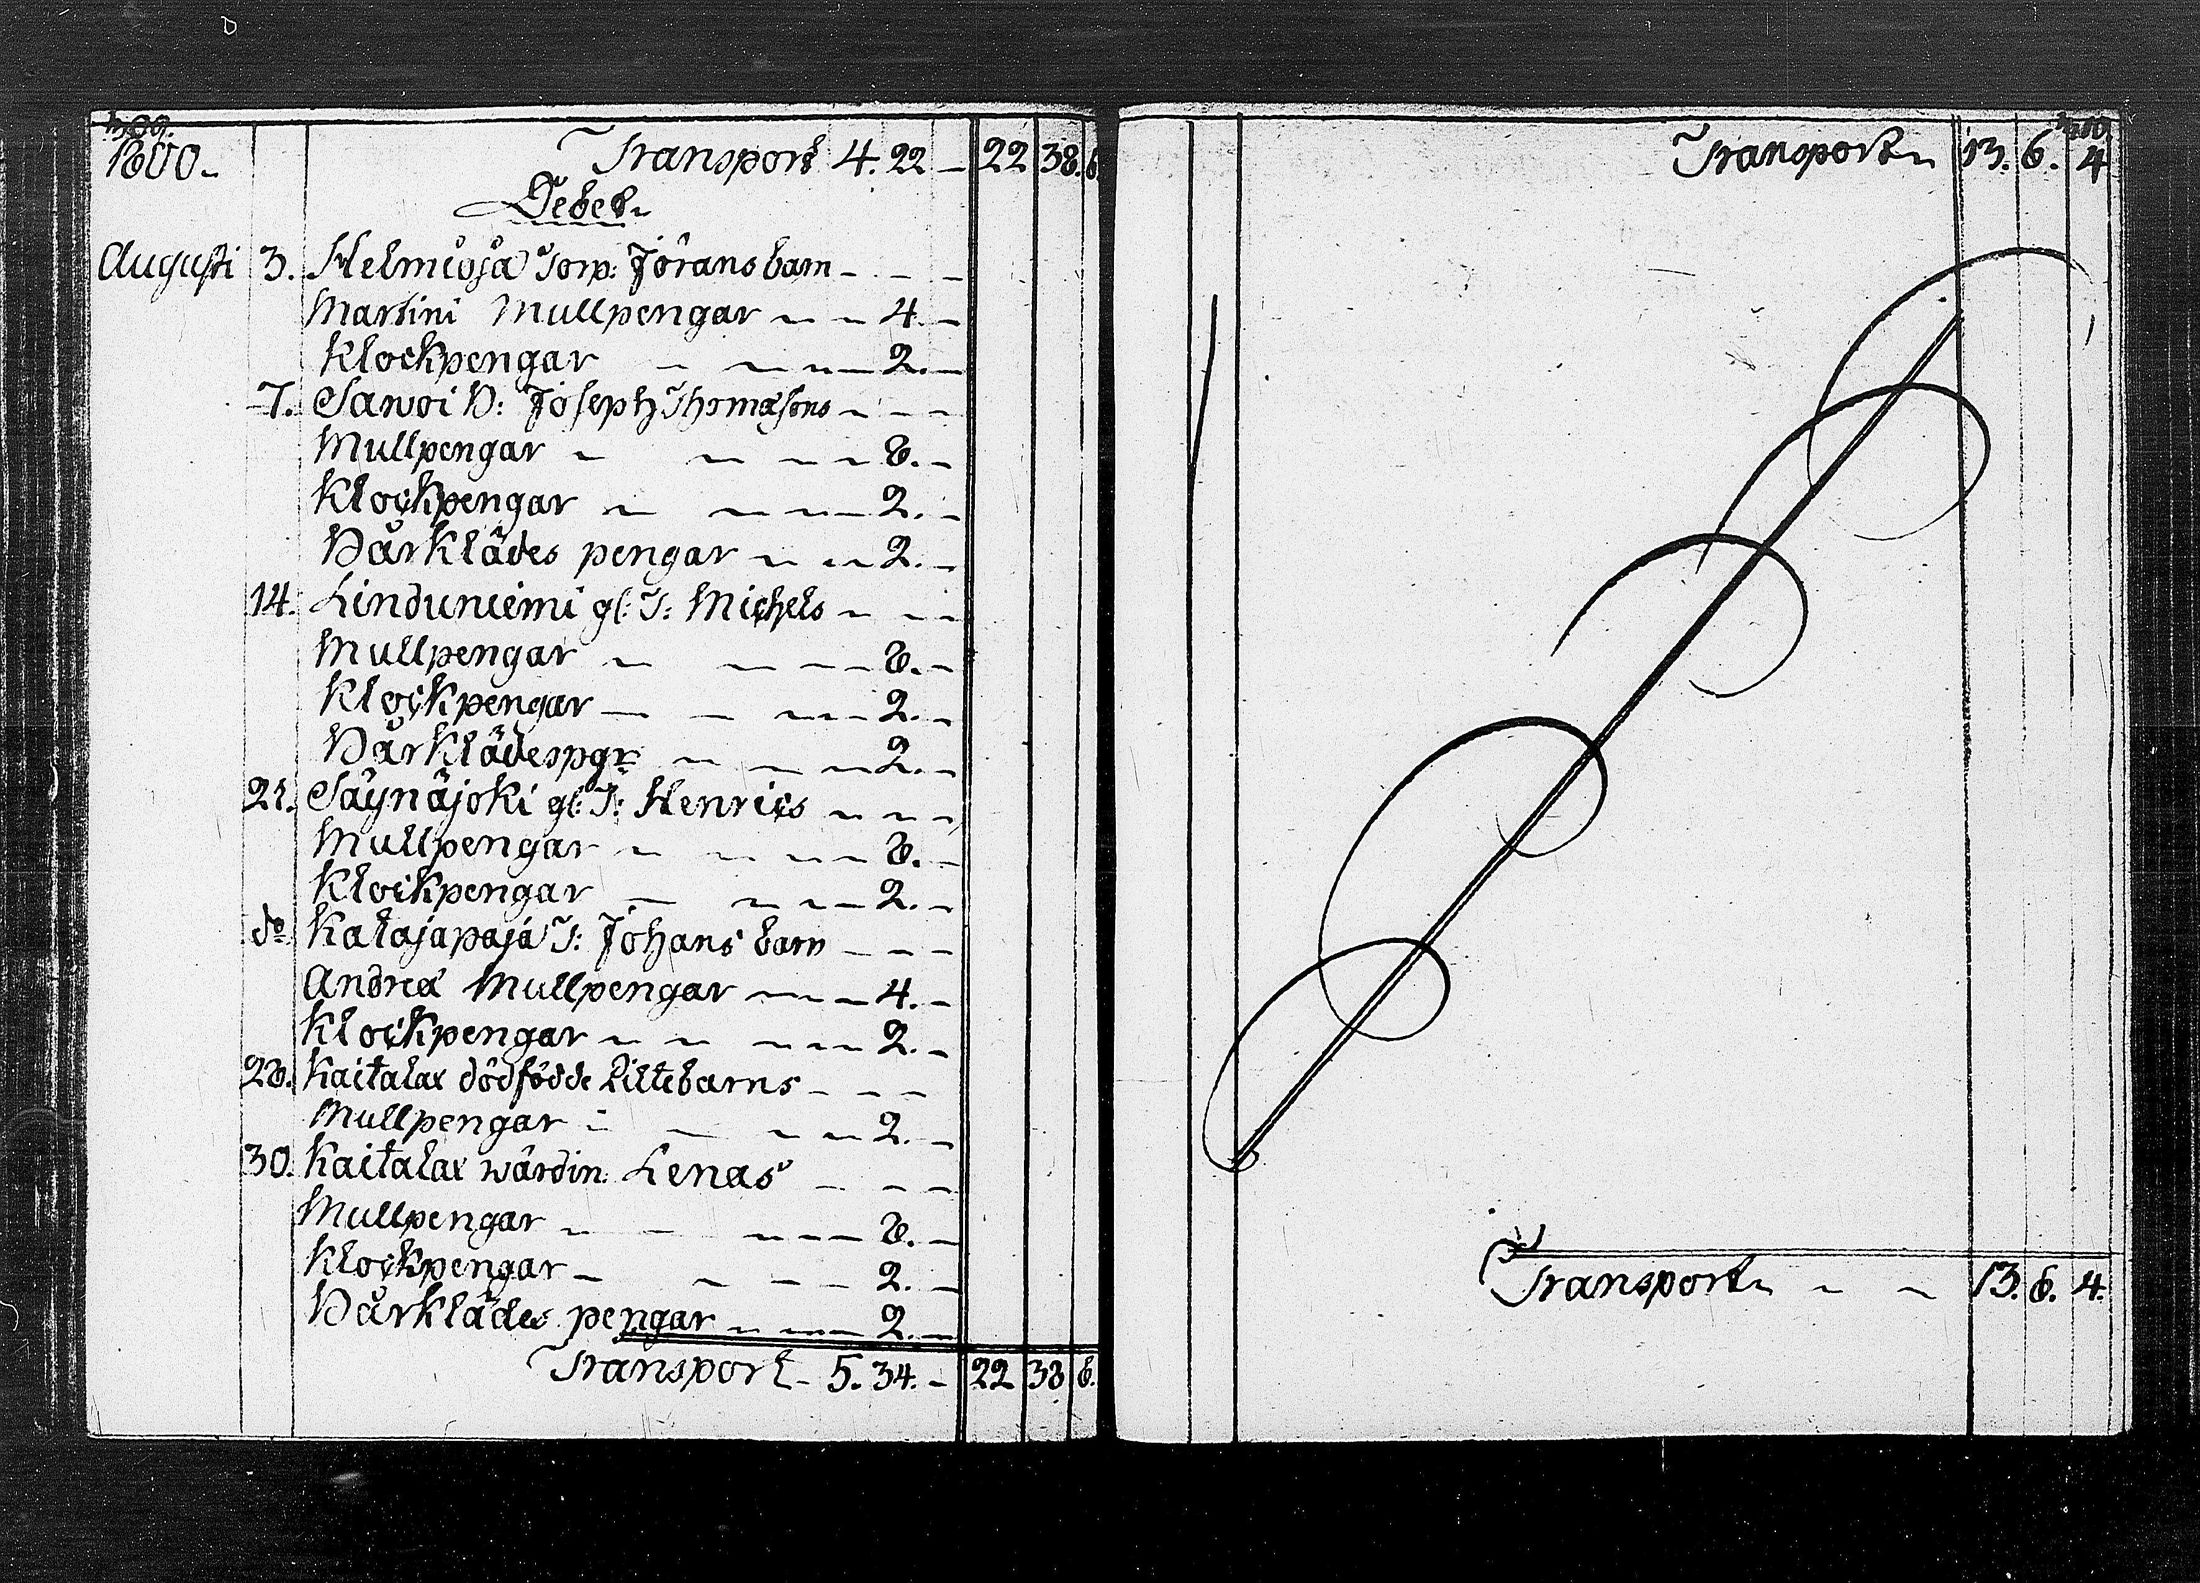 1800.
Transport 4. 22 - 22 38. 8.
Debet.
Augusti 3. Helmioja Torp: Jörans barn - - -
Martini Mullpengar - - 4. -
Klockpengar - - - 2. -
7. Sawoi D: Joseph Thomæsons - - -
Mullpengar - - - - 8. -
Klockpengar - - - - 2. -
Bårklädes pengar - - - 2. -
14. Linduniemi gl: T: Michels - - -
Mullpengar - - - - 8. -
Klockpengar - - - - 2. -
Bårklädespgr - - - 2. -
21. Säynäjoki gl: T: Henrics - - -
Mullpengar - - - - 8. -
Klockpengar - - - - 2. -
do Katajapaja T: Johans barn - - -
Andreæ Mullpengar - - - 4. -
Klockpengar - - - - 2. -
28. Kaitalax dödfödde Piltebarns - - -
Mullpengar - - - - 2. -
30. Kaitalax wärdin: Lenas - - -
Mullpengar - - - - 8. -
Klockpengar - - - - 2. -
Bårklädes pengar - - - 2. -
Transport - 5. 34. - 22 38 8.
Transport - 13. 6. 4
Transport - - - 13. 6. 4.